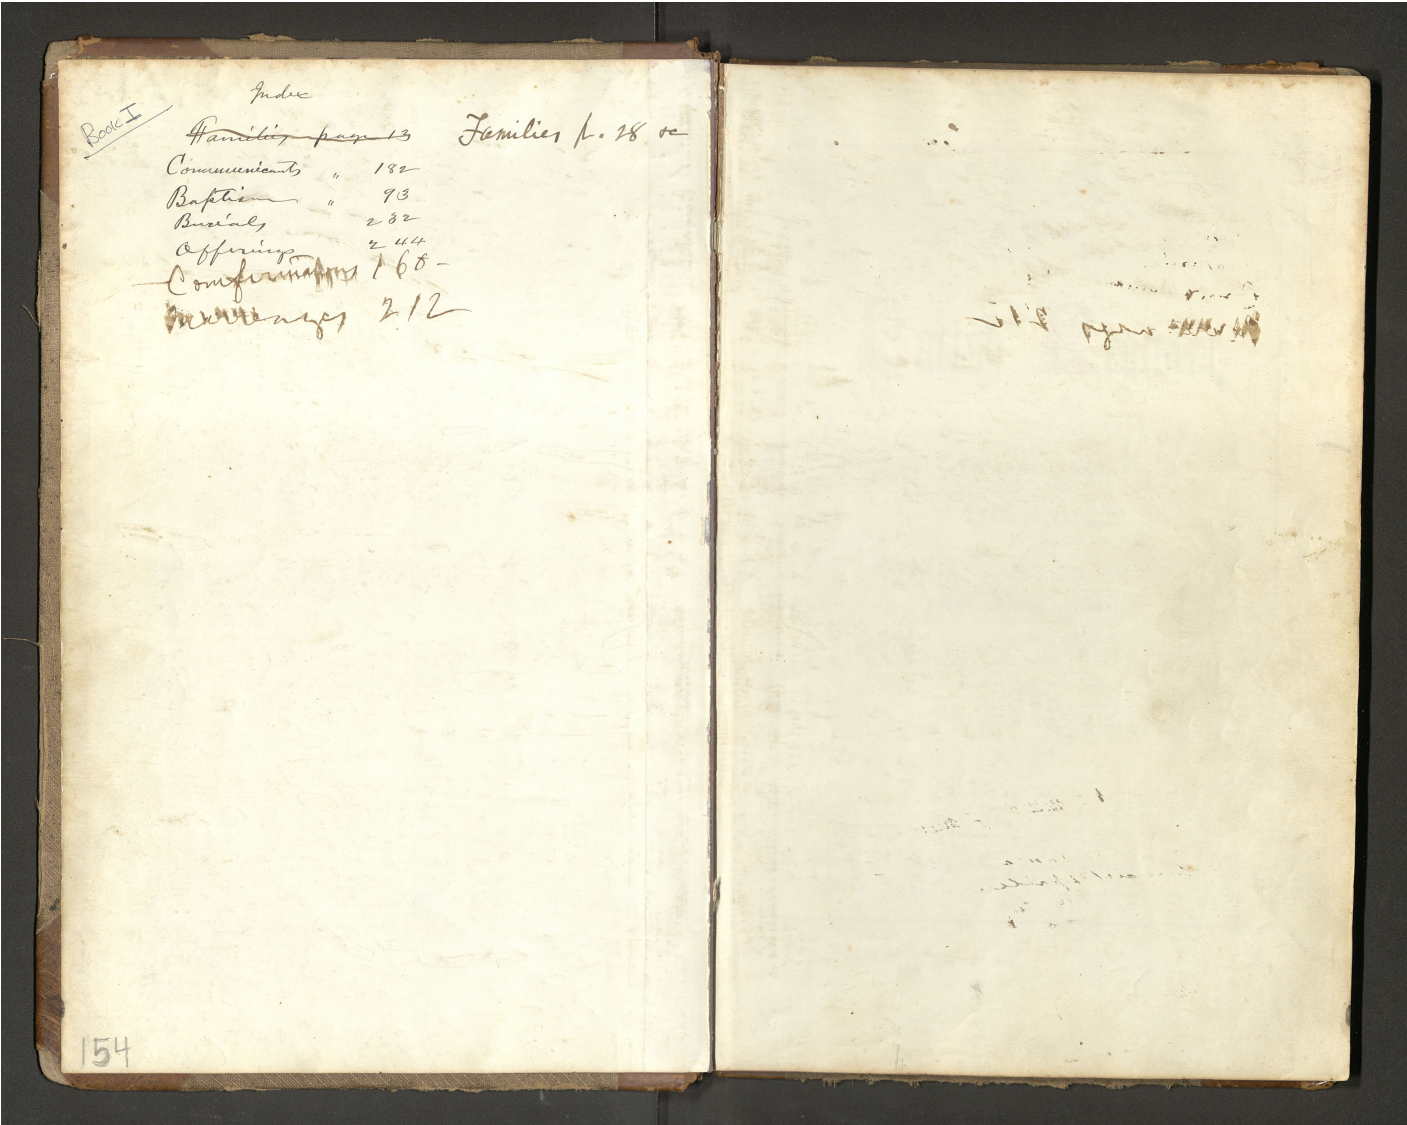 Book I
Index
Families page 13 Families p. 28 &c
Communicants " 182
Baptism " 93
Burials 232
Offerings 244
Confirmations 168 -
Marriages 212
154